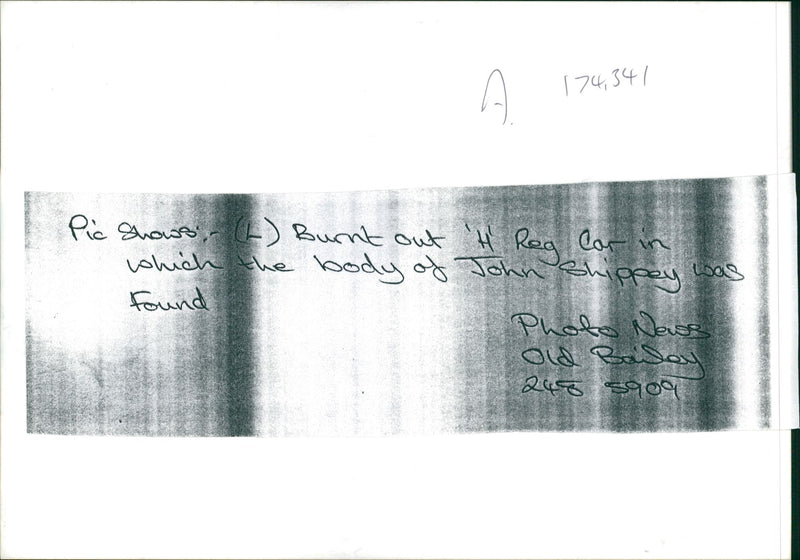 A. 174,341
Pic Shows:- (L) Burnt out 'H' Reg Car in
which the body of John Shippey was
Found
Photo News
Old Bailey
248 5909